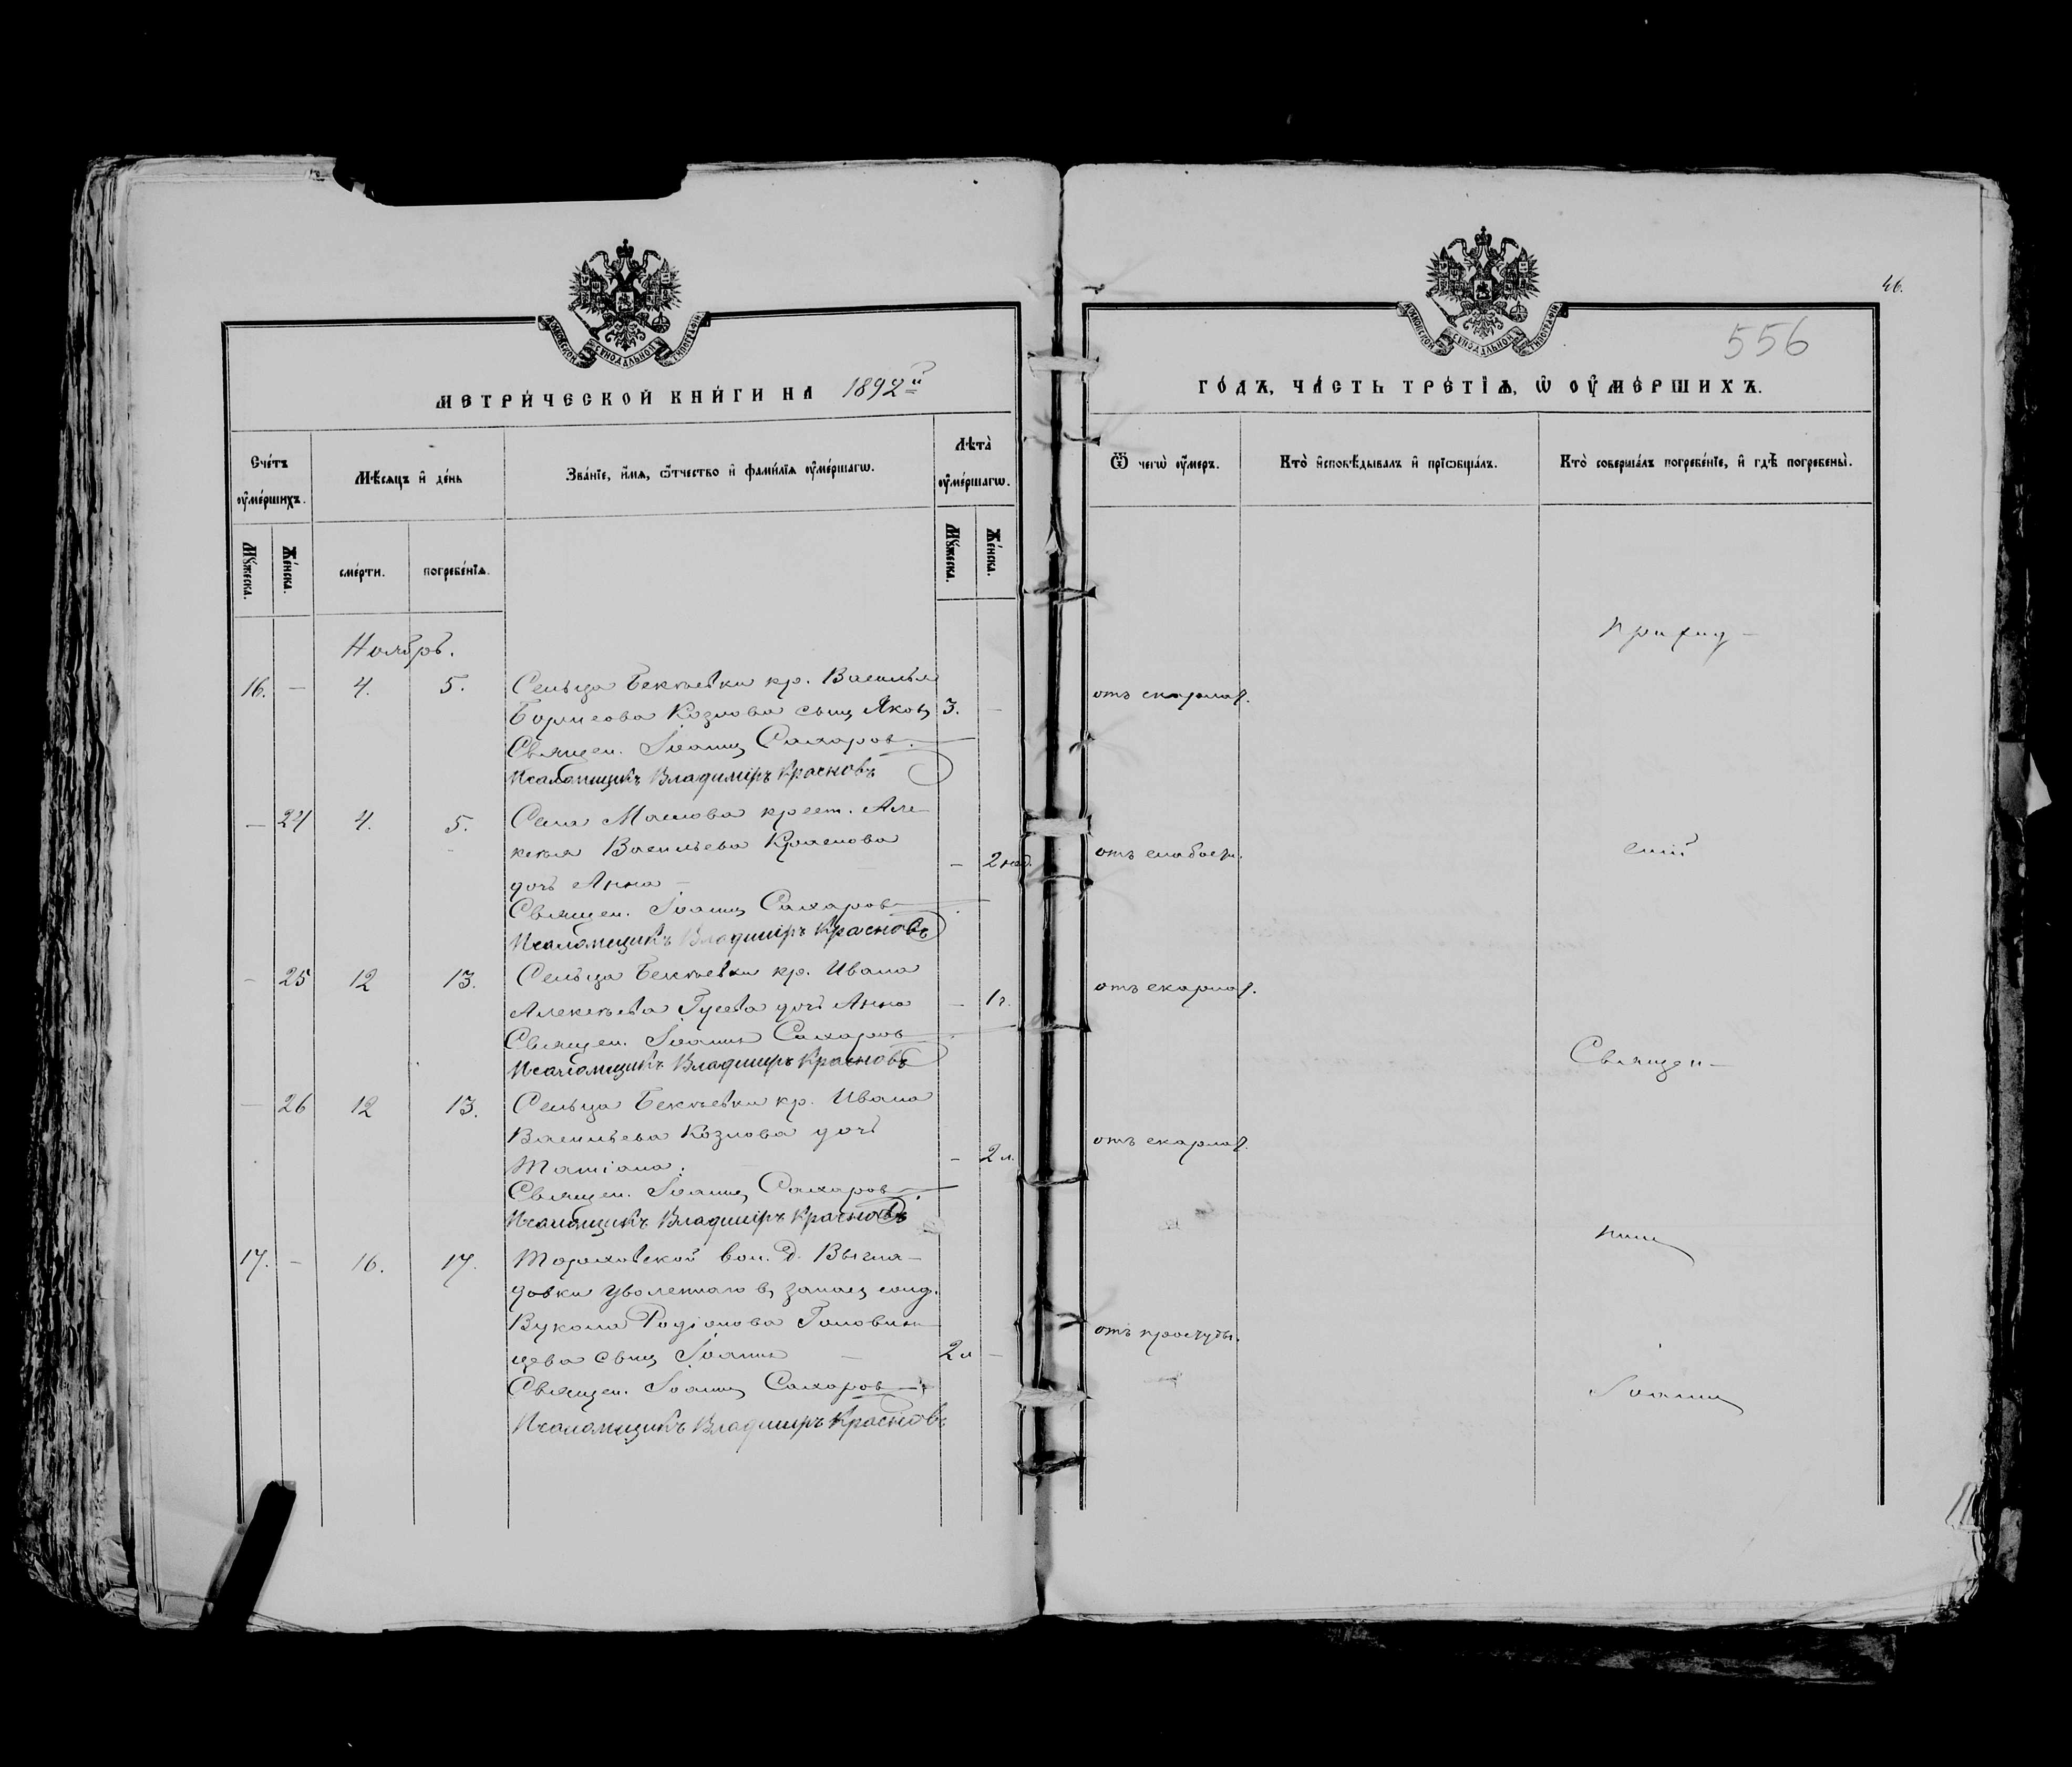 МОСКОВСКОЙ СѴНОДАЛЬНОЙ ТИПОГРАФІИ
МЕТРИ́ЧЕСКОЙ КНИ́ГИ НА 1892й
Сче́тъ оу҆ме́ршихъ.
Мѣ́сяцъ и҆ де́нь
Зва́нїе, и҆́мѧ, ѿтчество и҆ фами́лїѧ оу҆ме́ршагѡ.
Лѣта̀ оу҆ме́ршагѡ.
Мꙋ́жеска.
Же́нска.
сме́рти.
погребе́нїѧ.
Мꙋ́жеска.
Же́нска.
Ноябрь.
16. — 4. 5. Сельца Бекѣевки кр. Василья
Борисова Козлова сынъ Яковъ 3. —
Священ. Іоаннъ Сахаровъ
Псаломщикъ Владиміръ Красновъ
— 24 4. 5. Села Маслова крест. Але-
ксѣя Васильева Краснова
дочь Анна — — 2 нед.
Священ. Іоаннъ Сахаровъ
Псаломщикъ Владиміръ Красновъ
— 25 12 13. Сельца Бекѣевки кр. Ивана
Алексѣева Гусева дочь Анна — 1 г.
Священ. Іоаннъ Сахаровъ
Псаломщикъ Владиміръ Красновъ
— 26 12 13. Сельца Бекѣевки кр. Ивана
Васильева Козлова дочь
Татіана. — 2 л.
Священ. Іоаннъ Сахаровъ
Псаломщикъ Владиміръ Красновъ
17. — 16. 17. вол. д. Выгля-
довки уволеннаго въ запасъ солд.
Вукола Родіонова Головин-
цева сынъ Іоаннъ — 2 л —
Священ. Іоаннъ Сахаровъ
Псаломщикъ Владиміръ Красновъ
46.
556
МОСКОВСКОЙ СѴНОДАЛЬНОЙ ТИПОГРАФІИ
ГО́ДЪ, ЧА́СТЬ ТРЕ́ТЇѦ, Ѡ҆ ОУ҆МЕ́РШИХЪ.
Ѿ чегѡ̀ оу҆́меръ.
Кто̀ и҆сповѣ́дывалъ и҆ прїѡбща́лъ.
Кто̀ соверша́лъ погребе́нїе, и҆ гдѣ̀ погребены̀.
Приход-
отъ скарлат.
отъ слабости.
скій
отъ скарлат.
Священ-
отъ скарлат.
никъ
отъ простуды.
Іоаннъ